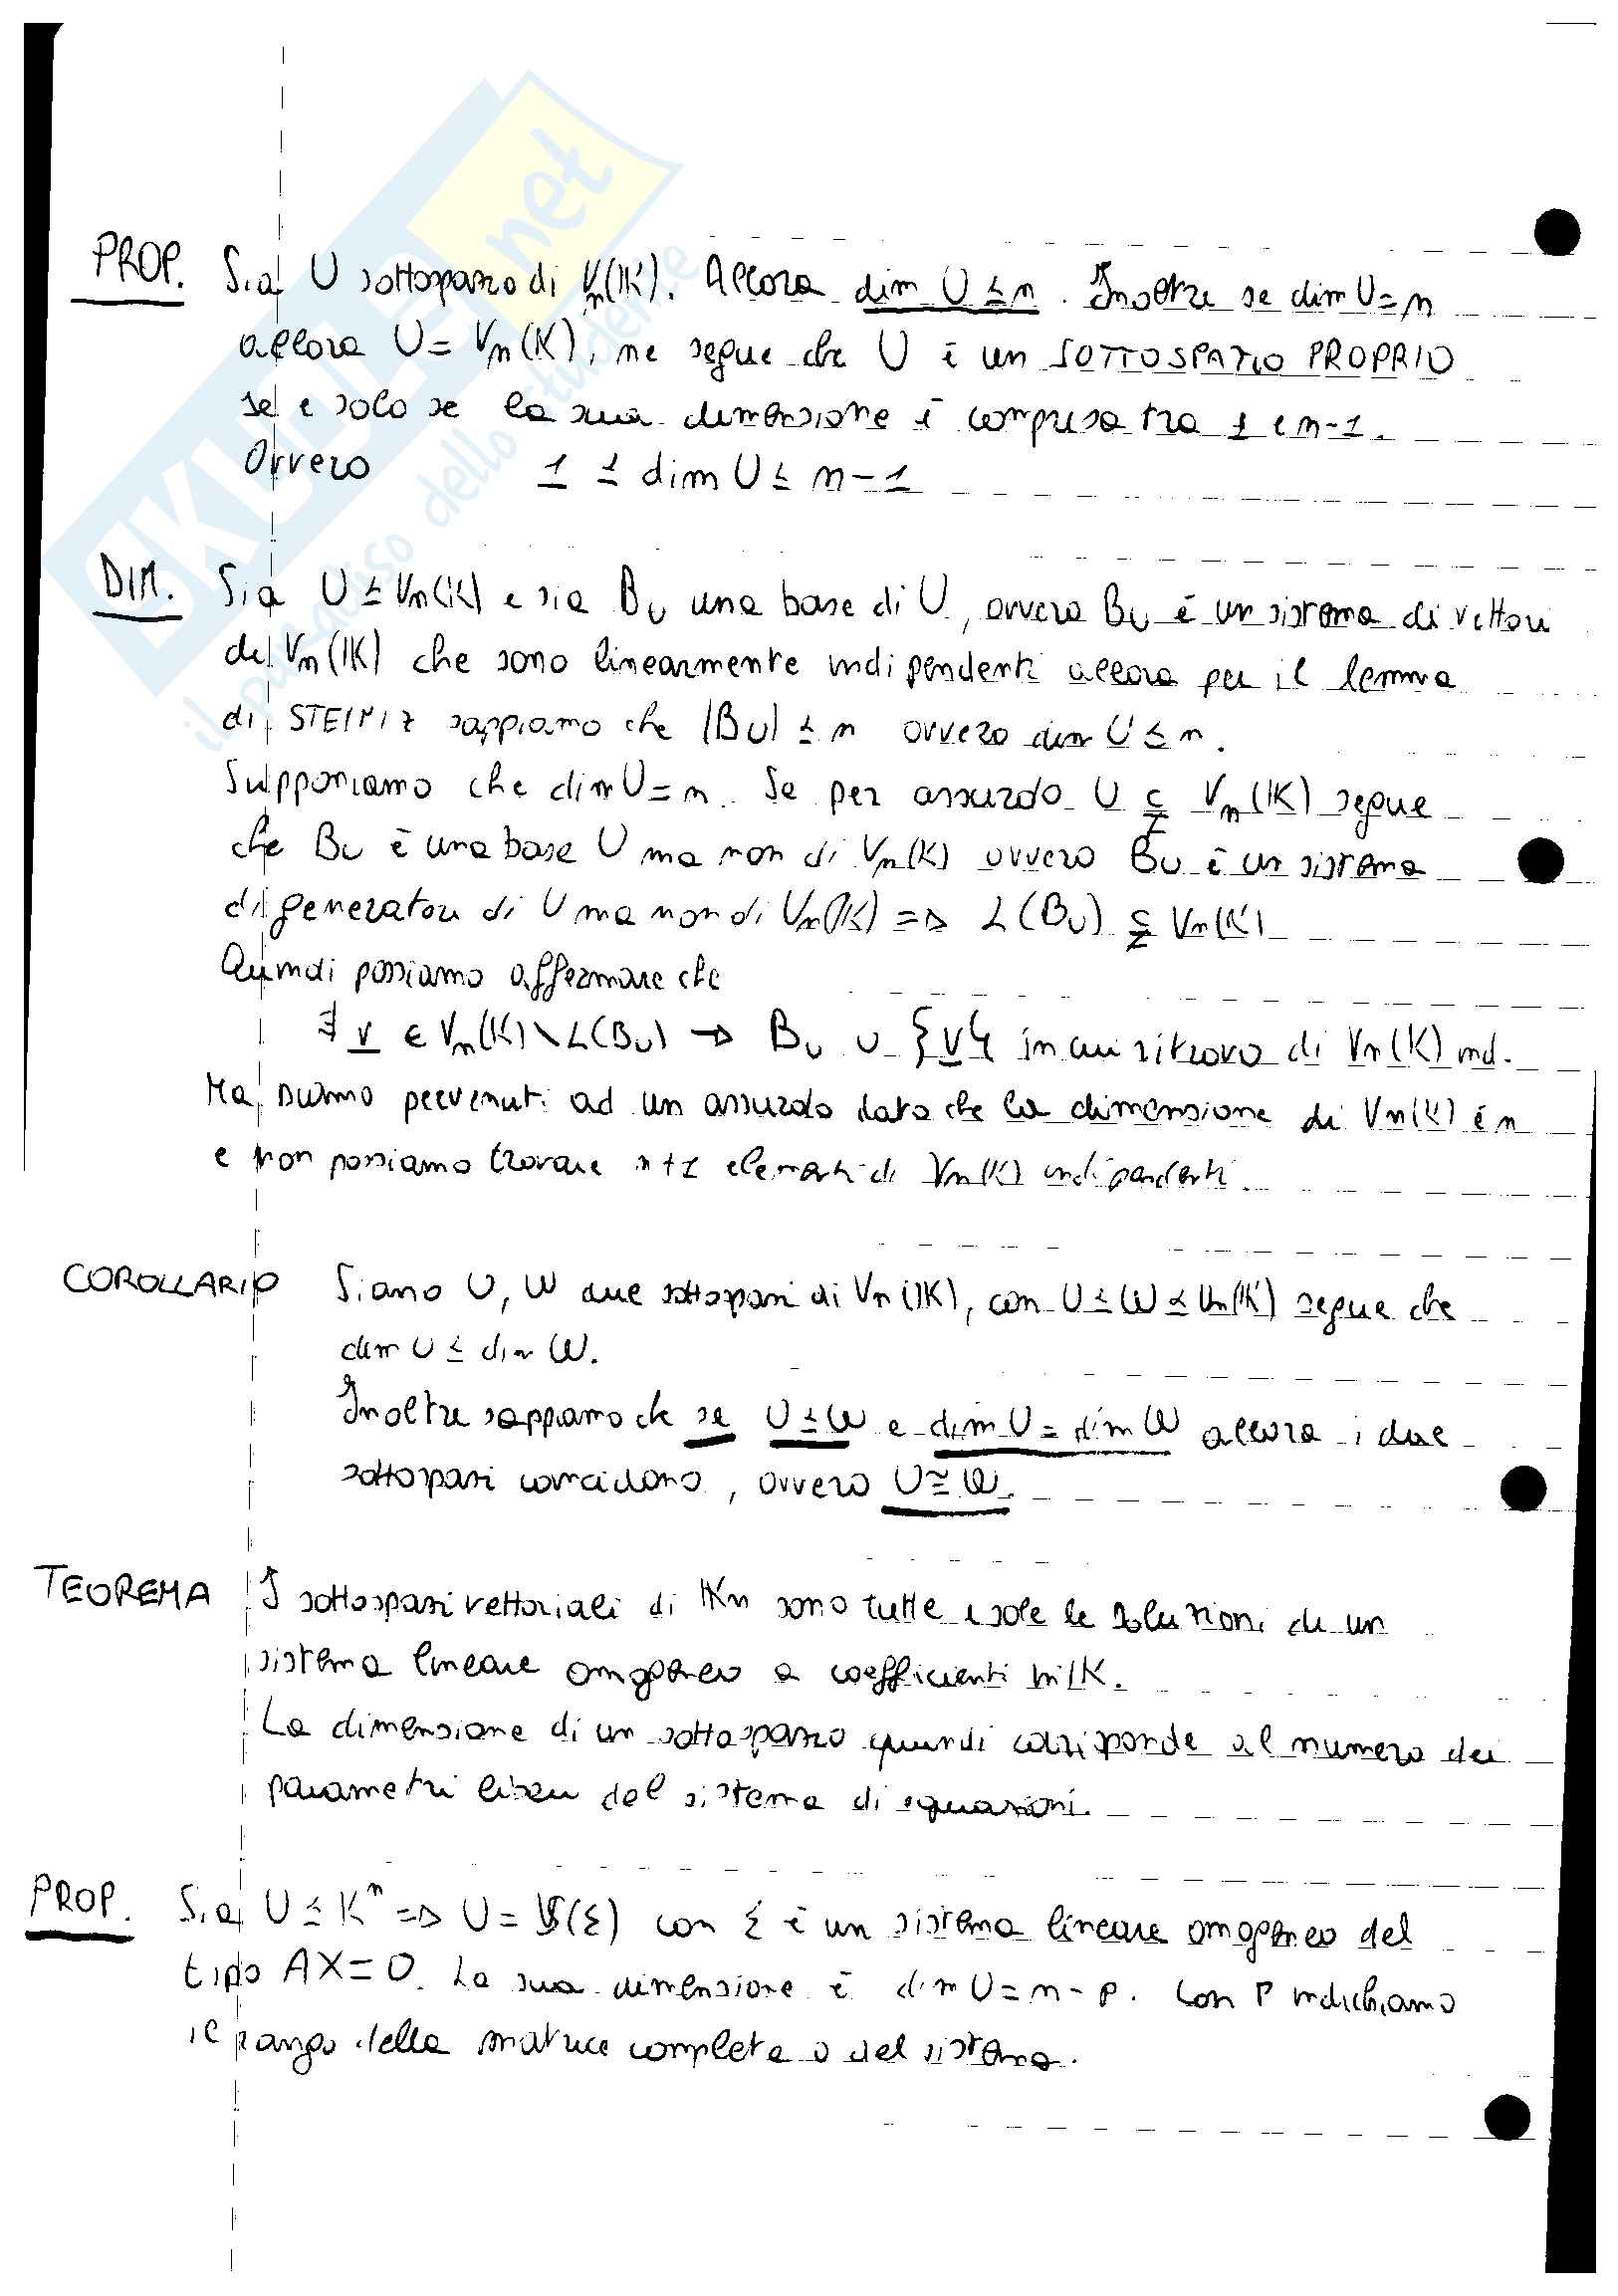 SKUOLA.net
il paradiso dello studente
PROP. Sia U sottospazio di Vn(IK). Allora dim U ≤ n. Inoltre se dim U = n
allora U = Vn(K), ne segue che U è un SOTTOSPAZIO PROPRIO
se e solo se la sua dimensione è compresa tra 1 e n-1.
Ovvero 1 ≤ dim U ≤ n-1
DIM. Sia U ≤ Vn(IK) e sia BU una base di U, ovvero BU è un sistema di vettori
di Vn(IK) che sono linearmente indipendenti allora per il lemma
di STEINIZ sappiamo che |BU| ≤ n ovvero dim U ≤ n.
Supponiamo che dim U = n. Se per assurdo U ⊊ Vn(IK) segue
che BU è una base U ma non di Vn(K) ovvero BU è un sistema
di generatori di U ma non di Vn(IK) => L(BU) ⊊ Vn(K)
Quindi possiamo affermare che
∃ v ∈ Vn(K) \ L(BU) → BU ∪ {v} in cui ritrovo di Vn(K) ind.
Ma siamo pervenuti ad un assurdo dato che la dimensione di Vn(K) è n
e non possiamo trovare n+1 elementi di Vn(K) indipendenti.
COROLLARIO Siano U, W due sottospazi di Vn(IK), con U ≤ W ≤ Vn(IK) segue che
dim U ≤ dim W.
Inoltre sappiamo che se U ≤ W e dim U = dim W allora i due
sottospazi coincidono, ovvero U ≅ W.
TEOREMA I sottospazi vettoriali di IKn sono tutte e sole le soluzioni di un
sistema lineare omogeneo a coefficienti in IK.
La dimensione di un sottospazio quindi corrisponde al numero dei
parametri liberi del sistema di equazioni.
PROP. Sia U ≤ K^n => U = S(Σ) con Σ è un sistema lineare omogeneo del
tipo AX = 0. La sua dimensione è dim U = n - p. Con P indichiamo
il rango della matrice completa o del sistema.